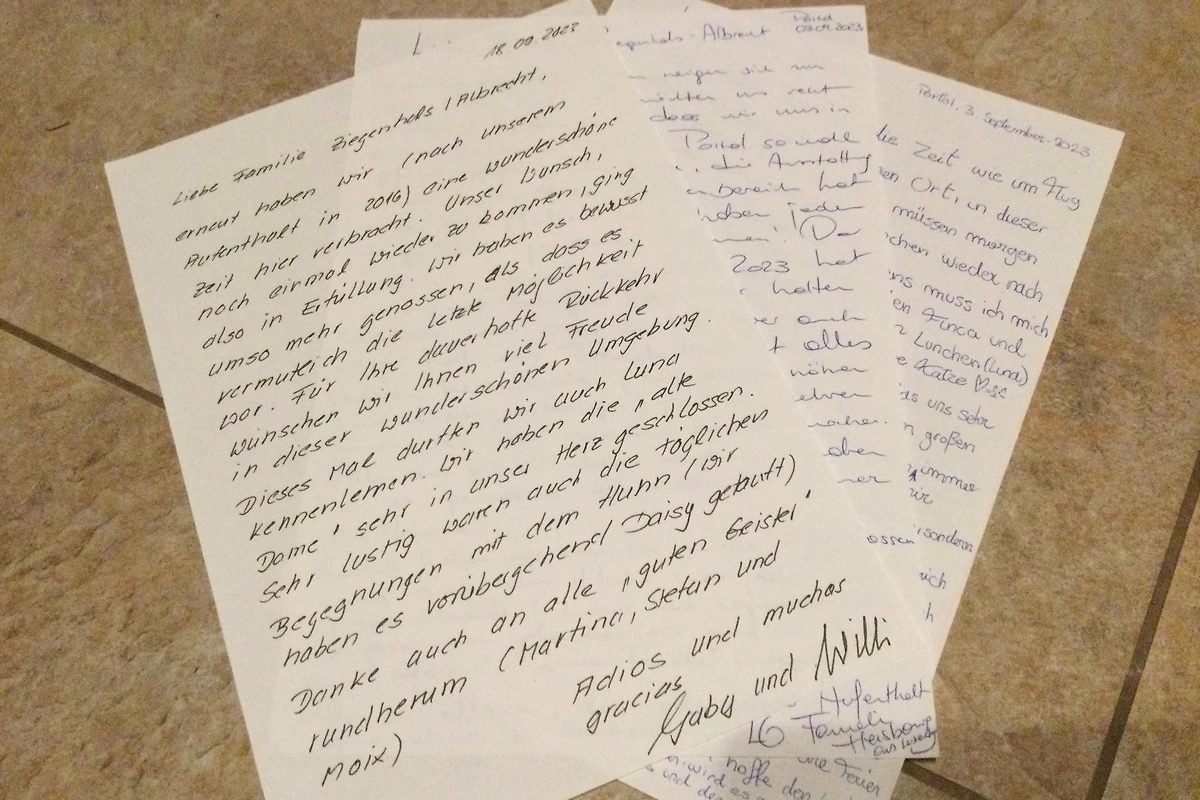 18.09.2023
Liebe Familie Ziegenhals / Albrecht,
erneut haben wir (nach unserem
Aufenthalt in 2016) eine wunderschöne
Zeit hier verbracht. Unser Wunsch,
noch einmal wieder zu kommen, ging
also in Erfüllung. Wir haben es bewusst
umso mehr genossen, als dass es
vermutlich die letzte Möglichkeit
war. Für Ihre dauerhafte Rückkehr
wünschen wir Ihnen viel Freude
in dieser wunderschönen Umgebung.
Dieses Mal durften wir auch Luna
kennenlernen. Wir haben die "alte
Dame" sehr in unser Herz geschlossen.
Sehr lustig waren auch die täglichen
Begegnungen mit dem Huhn (wir
haben es vorübergehend Daisy getauft)
Danke auch an alle "guten Geister"
rundherum (Martina, Stefan und
Moix)
Adios und muchas
gracias
Gaby und Willi
L..
- Albrecht
03.09.2023
neigen sich
dass wir uns in
so wohl
die Ausstattung
bereich hat
haben jeden
Da
2023 hat
alles
Portol, 3. September. 2023
die Zeit wie im Flug
en Ort, in dieser
müssen morgen
chen wieder nach
ns muss ich mich
en Finca und
Lunchen (Luna)
e Katze
uns sehr
n großen
immer
wir
sondern
ich
h
LG Familie
Aufenthalt
hoffe den
wie Ferien
wird es
und der